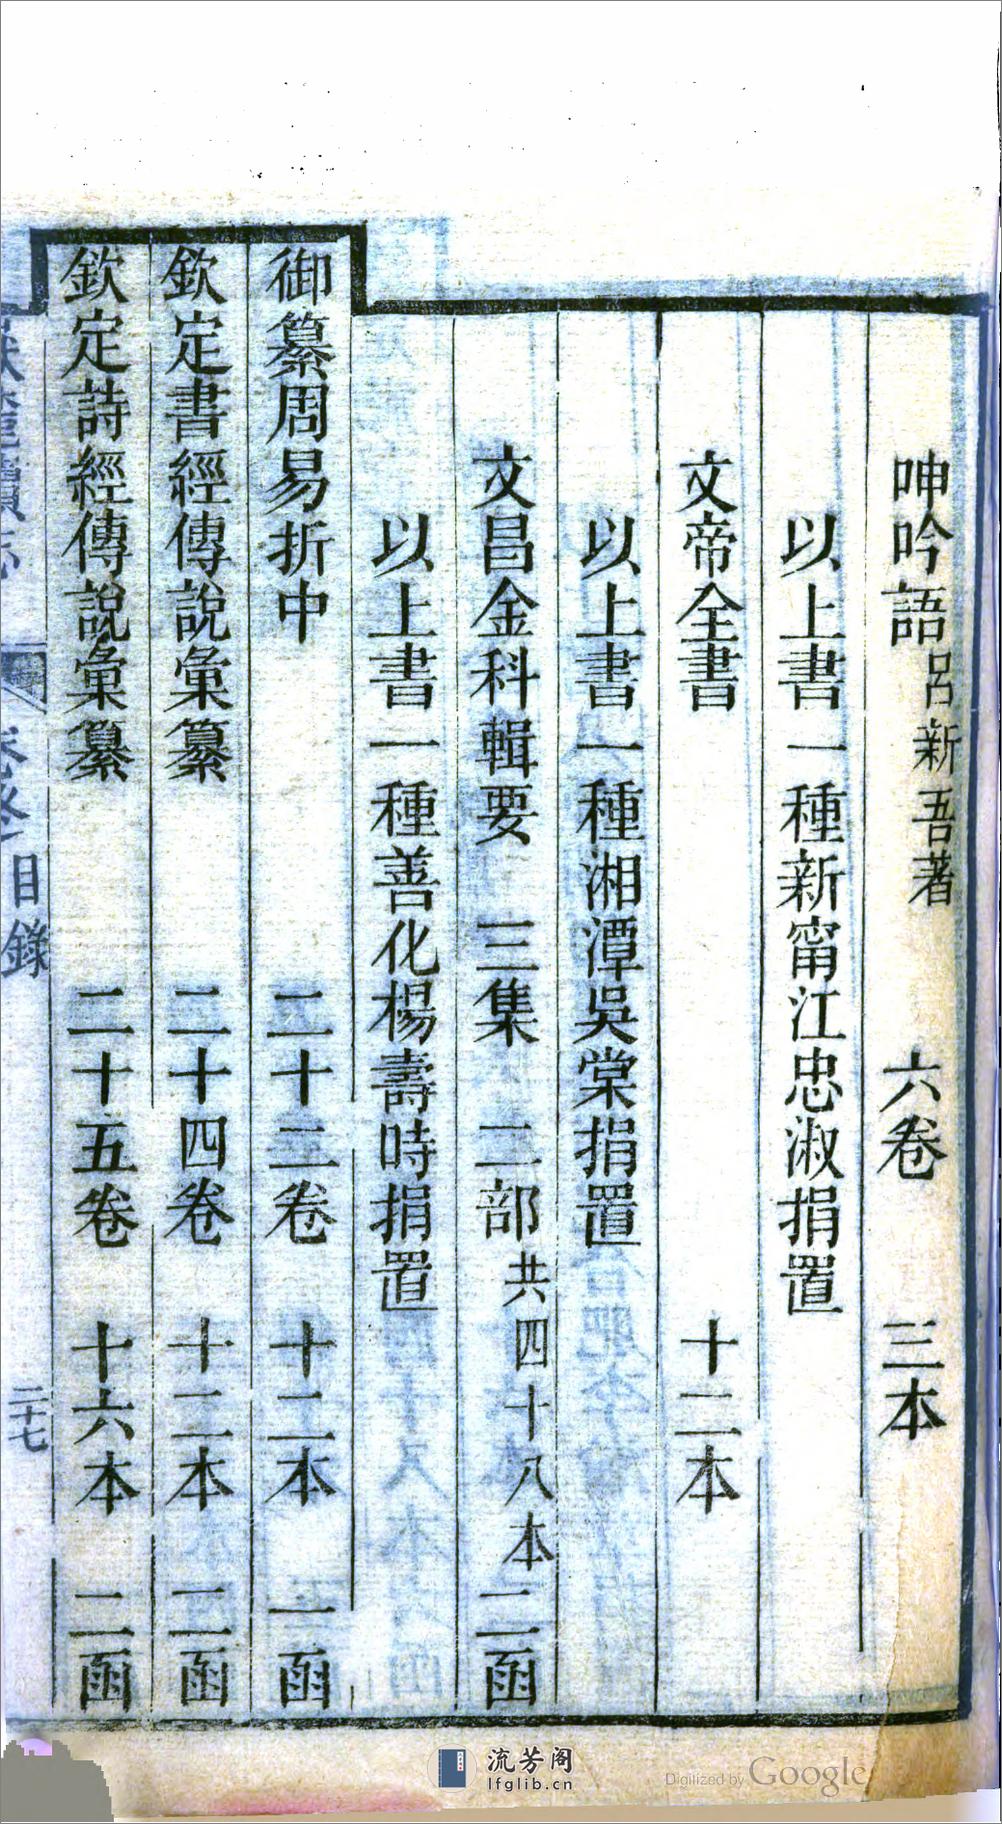 呻吟語 呂新吾著 六卷 三本
以上書一種新甯江忠淑捐置
文帝全書 十二本
以上書一種湘潭吳棠捐置
文昌金科輯要 三集 二部 共四十八本 二函
以上書一種善化楊壽時捐置
御纂周易折中 二十二卷 十二本 一函
欽定書經傳說彙纂 二十四卷 十二本 二函
欽定詩經傳說彙纂 二十五卷 十六本 二函
目錄
二十七
流芳阁
lfglib.cn
Digitized by Google